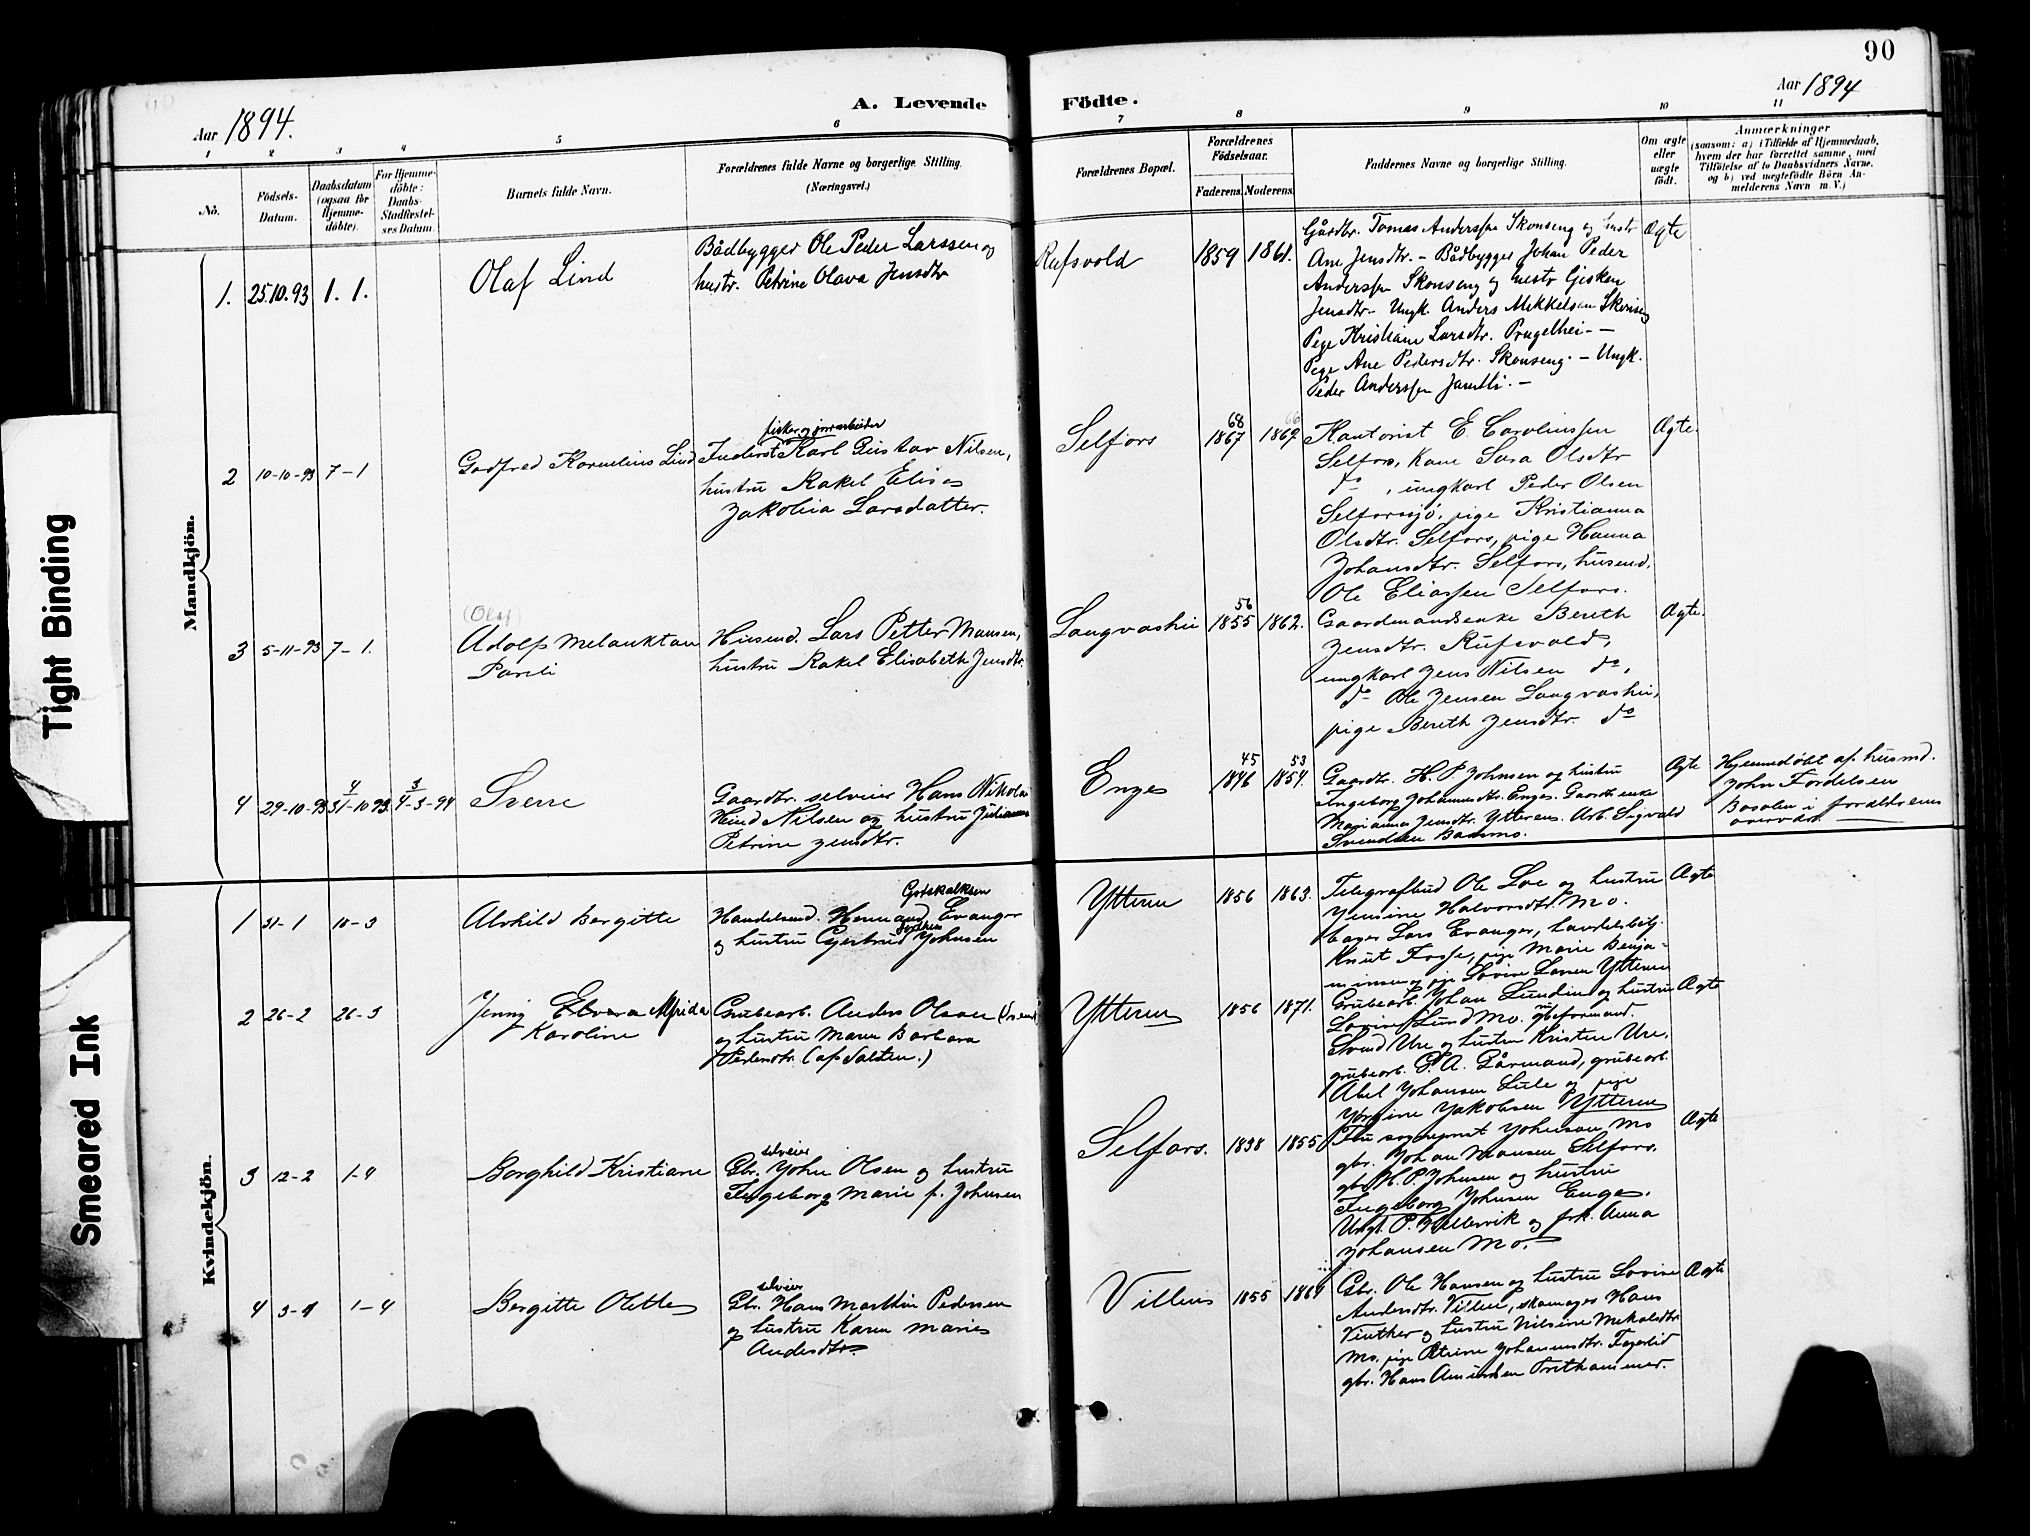 90
Aar 1894.
A. Levende Födte.
Aar 1894
1 2 3 4 5 6 7 8 9 10 11
Nö.
Födsels-
Datum.
Daabsdatum
(ogsaa for
Hjemme-
döbte).
For Hjemme-
döbte:
Daabs-
Stadfæstel-
ses Datum.
Barnets fulde Navn.
Forældrenes fulde Navne og borgerlige Stilling.
(Næringsvei.)
Forældrenes Bopæl.
Forældrenes
Födselsaar.
Faderens. Moderens.
Faddernes Navne og borgerlige Stilling.
Om ægte
eller
uægte
födt.
Anmærkninger
(saasom: a) i Tilfælde af Hjemmedaab,
hvem der har forrettet samme, med
Tilföielse af to Daabsvidners Navne,
og b) ved uægtefödte Börn An-
melderens Navn m. V.)
Mandkjön.
1. 25.10.93 1. 1.
Olaf Lind
Bådbygger Ole Peder Larssen og
hustr. Petrine Olava Jensdtr
Rufsvold
1859 1861.
Gårdbr. Tomas Anderssen Skonseng og hustr
Ane Jensdtr. - Bådbygger Johan Peder
Anderssen Skonseng og hustr Gjisken
Jensdtr. - Ungk. Anders Mikkelsen Skonseng
Pige Kristiane Larsdtr. -
Pige Ane Pedersdtr. Skonseng. - Ungk.
Peder Anderssen Jamtli. -
Ægte
2 10-10-93 7-1
Godfred Kornelius Lind
fisker og jordarbeider
Inderst Karl Gustav Nilsen,
hustru Rakel Elise
Jakobia Larsdatter.
Selfors
68
1867
66
1869
Kantorist E. Carolinssen
Selfors, Kone Sara Olsdtr
do, ungkarl Peder Olsen
Selforssjö, pige Kristianna
Olsdtr. Selfors, pige Hanna
Johansdtr. Selfors, husmd.
Ole Eliassen Selfors.
Ægte.
3 5-11-93 7-1.
(Olaf)
Adolf Melanktan
Pareli
Husmd. Lars Petter Monsen,
hustru Rakel Elisabeth Jensdtr.
Langvashei
56
1855 1862.
Gaardmandsenke Bereth
Jensdtr. Rufsvold,
ungkarl Jens Nilsen do,
do Ole Jensen Langvashei,
pige Bereth Jensdtr. do
Ægte.
4 29-10-93 31/4-10 93 4/3-3-94
Sverre
Gaardbr. selveier Hans Nikolai
Hind Nilsen og hustru Julianna
Petrine Jensdtr.
Enge
45
1846
53
1854.
Gaardbr. H. P. Johnsen og hustru
Ingeborg Johannesdtr. Enge. Gaardbr enke
Marianna Jensdtr. Ytteren. Arb. Sigvald
Svendsen Basmo.
Ægte
Hjemmedöbt af husmd.
John Fordelsen
Basalen i forældrenes
overvær
Kvindekjön.
1 31-1 10-3
Alvhild Bergitte
Gotskalksen
Handelsmd. Hermand Evanger
og hustru Gjertrud Johnsen
Ytteren
1856 1863.
Telegrafbud Ole Loe og hustru
Jensine Halvorsdtr Mo.
bager Lars Evanger, handelsbetj.
Knut Fosse, pige Marie Benja-
minsen og pige Lovise Larsen Ytteren
Ægte
2 26-2 26-3
Jenny Elvera Alfrida
Karoline
Grubearb. Anders Olsen
og hustru Maren Barbara
Pedersdtr. (af Salten.)
Ytteren
1856 1871.
Grubearb. Johan Lundin og hustru
Lovise Lund Mo. grubeformand.
Svend Ure og hustru Kristine Ure,
grubearb. P. A. Pårmand, grubearb.
Abel Johansen Lule og pige
Jörgine Jakobsen Ytteren
Ægte
3 12-2 1-4
Borghild Kristiane
selveier
Gbr. John Olsen og hustru
Ingeborg Marie f. Johnsen
Selfors.
1838 1855
Fru sogneprest Johnson Mo
gbr. Johan Monsen Selfors.
gbr. H. P. Johnsen og hustru
Ingeborg Johnsen Enge.
Ungk. P. Hellervik og frk. Anna
Johansen Mo.
Ægte
4 3-1 1-4
Bergitte Olette
selveier
Gbr. Hans Martin Pedersen
og hustru Karen Marie
Andersdtr.
Villen
1855 1864
Gbr. Ole Hansen og hustru Lovise
Andersdtr. Villen, skomager Hans
Vinther og hustru Nilsine Mikalsdtr.
Mo. pige Petrine Johannesdtr. Fagerlid
gbr. Hans Amundsen Brethammer.
Ægte
Tight Binding
Smeared Ink